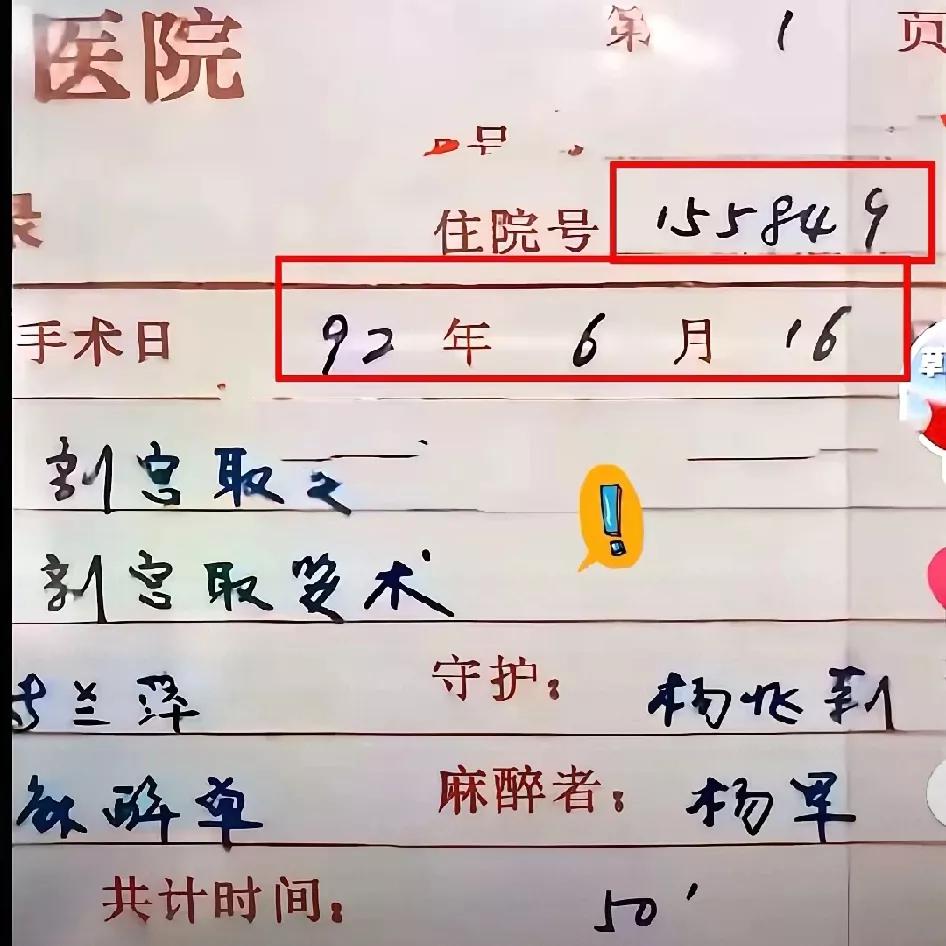 医院 第 1 页
号
录 住院号 155849
手术日 92 年 6 月 16
剖宫取
剖宫取 术
兰萍 守护：杨
麻醉单 麻醉者：杨军
共计时间：50′
草